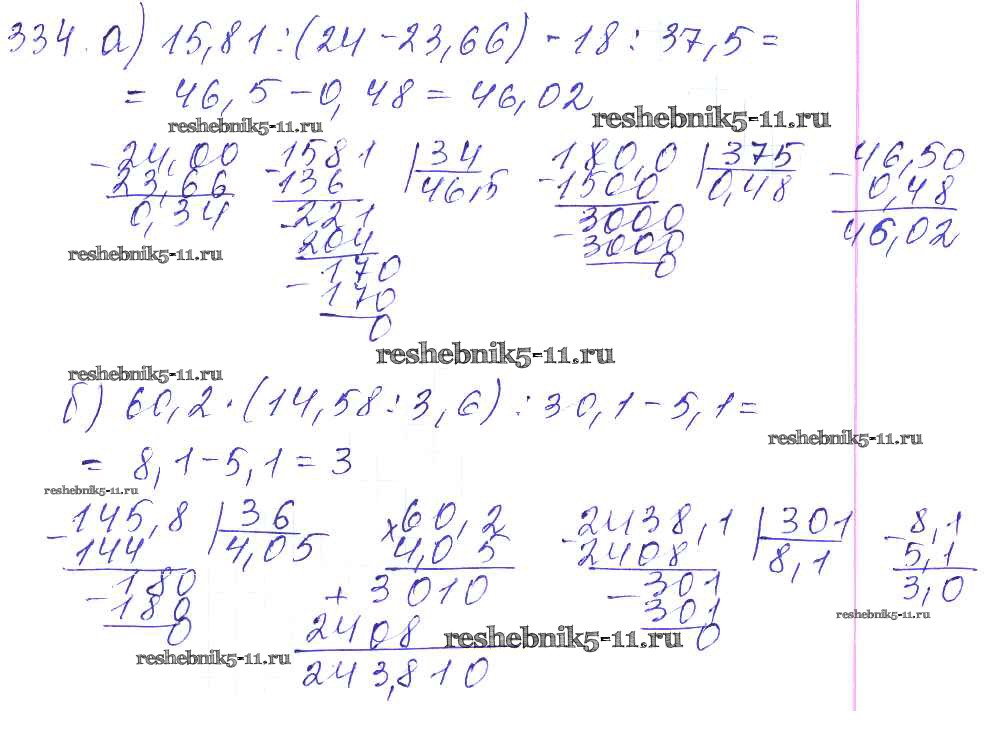 334. а) 15,81 : (24 - 23,66) - 18 : 37,5 =
= 46,5 - 0,48 = 46,02
reshebnik5-11.ru reshebnik5-11.ru
- 24,00 - 1581 | 34 - 180,0 | 375 - 46,50
23,66 136 46,5 1500 0,48 0,48
0,34 - 221 - 3000 46,02
204 3000
reshebnik5-11.ru
- 170 0
170
0
reshebnik5-11.ru
reshebnik5-11.ru
б) 60,2 · (14,58 : 3,6) : 30,1 - 5,1 =
reshebnik5-11.ru
= 8,1 - 5,1 = 3
reshebnik5-11.ru
- 145,8 | 36 × 60,2 - 2438,1 | 301 - 8,1
144 4,05 4,05 2408 8,1 5,1
- 180 + 3010 - 301 3,0
180 2408 301
0 243,810 0
reshebnik5-11.ru
reshebnik5-11.ru
reshebnik5-11.ru